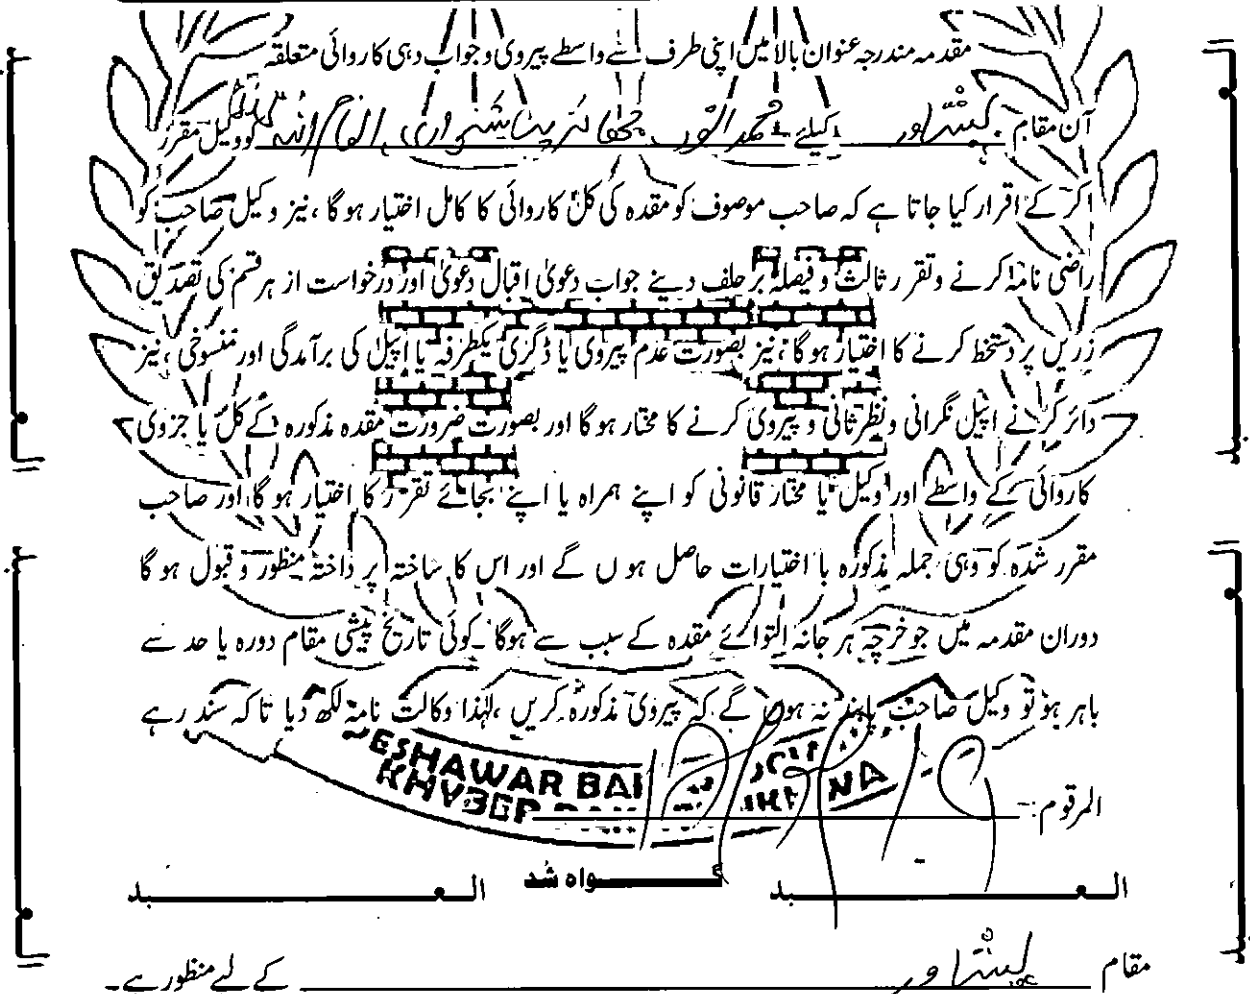 مقدمہ مندرجہ عنوان بالا میں اپنی طرف سے واسطے پیروی و جواب دہی کاروائی متعلقہ
آن مقام پشاور کیلئے کو وکیل مقرر
کر کے اقرار کیا جاتا ہے کہ صاحب موصوف کو مقدہ کی کل کاروائی کا کامل اختیار ہو گا ، نیز وکیل صاحب کو
راضی نامہ کرنے و تقرر ثالث و فیصلہ بر حلف دینے جواب دعویٰ اقبال دعویٰ اور درخواست از ہر قسم کی تصدیق
زریں پر دستخط کرنے کا اختیار ہو گا ، نیز بصورت عدم پیروی یا ڈگری یکطرفہ یا اپیل کی برآمدگی اور منسوخی ، نیز
دائر کرنے اپیل نگرانی و نظر ثانی و پیروی کرنے کا مختار ہو گا اور بصورت ضرورت مقدہ مذکورہ کے کل یا جزوی
کاروائی کے واسطے اور وکیل یا مختار قانونی کو اپنے ہمراہ یا اپنے بجائے تقرر کا اختیار ہو گا اور صاحب
مقرر شدہ کو وہی جملہ مذکورہ با اختیارات حاصل ہو ں گے اور اس کا ساختہ پرداختہ منظور و قبول ہو گا
دوران مقدمہ میں جو خرچہ ہر جانہ التوائے مقدہ کے سبب سے ہوگا ۔ کوئی تاریخ پیشی مقام دورہ یا حد سے
باہر ہو تو وکیل صاحب پابند نہ ہوں گے کہ پیروی مذکورہ کریں ، لہٰذا وکالت نامہ لکھ دیا تاکہ سند رہے
PESHAWAR BAR
المرقوم :-
العبد گواہ شد العبد
مقام پشاور کے لیے منظور ہے ۔